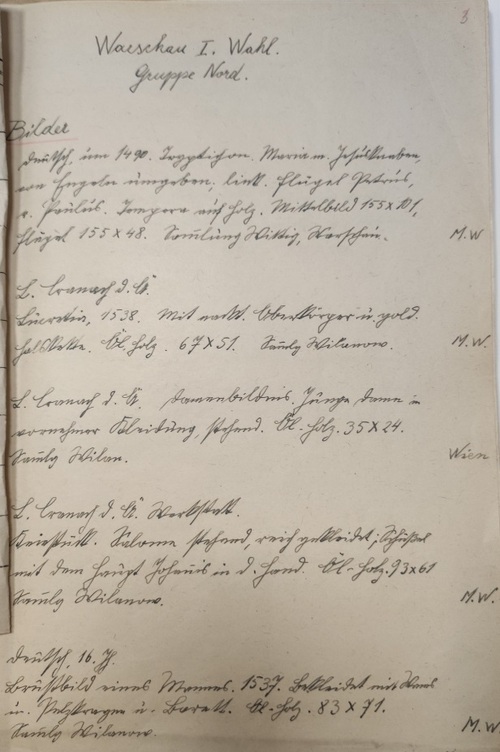 3
Warschau I. Wahl.
Gruppe Nord.
Bilder
Deutsch, um 1490. Tryptichon. Maria m. Jesusknaben,
von Engeln umgeben, link. Flügel Petrus,
r. Paulus. Tempera auf Holz. Mittelbild 155x101,
Flügel 155x48. Samlung Wittig, Warschau. M.W
L. Cranach d. Ä.
Lucretia, 1538. Mit nackt. Oberkörper u. gold.
Halskette. Öl. Holz. 67x51. Samlg Wilanow. M.W.
L. Cranach d. Ä. Damenbildnis. Junge Dame in
vornehmer Kleidung, stehend. Öl-Holz. 35x24.
Samlg Wilan. Wien
L. Cranach d. Ä Werkstatt.
Kniestück. Salome stehend, reich gekleidet; Schüßel
mit dem Haupt Johanis in d. Hand. Öl-Holz. 93x61
Samlg Wilanow. M.W.
Deutsch, 16. Jh.
Brustbild eines Mannes. 1537. Bekleidet mit Wams
u. Pelzkragen u. Barett. Öl-Holz. 83x71.
Samlg Wilanow. M.W